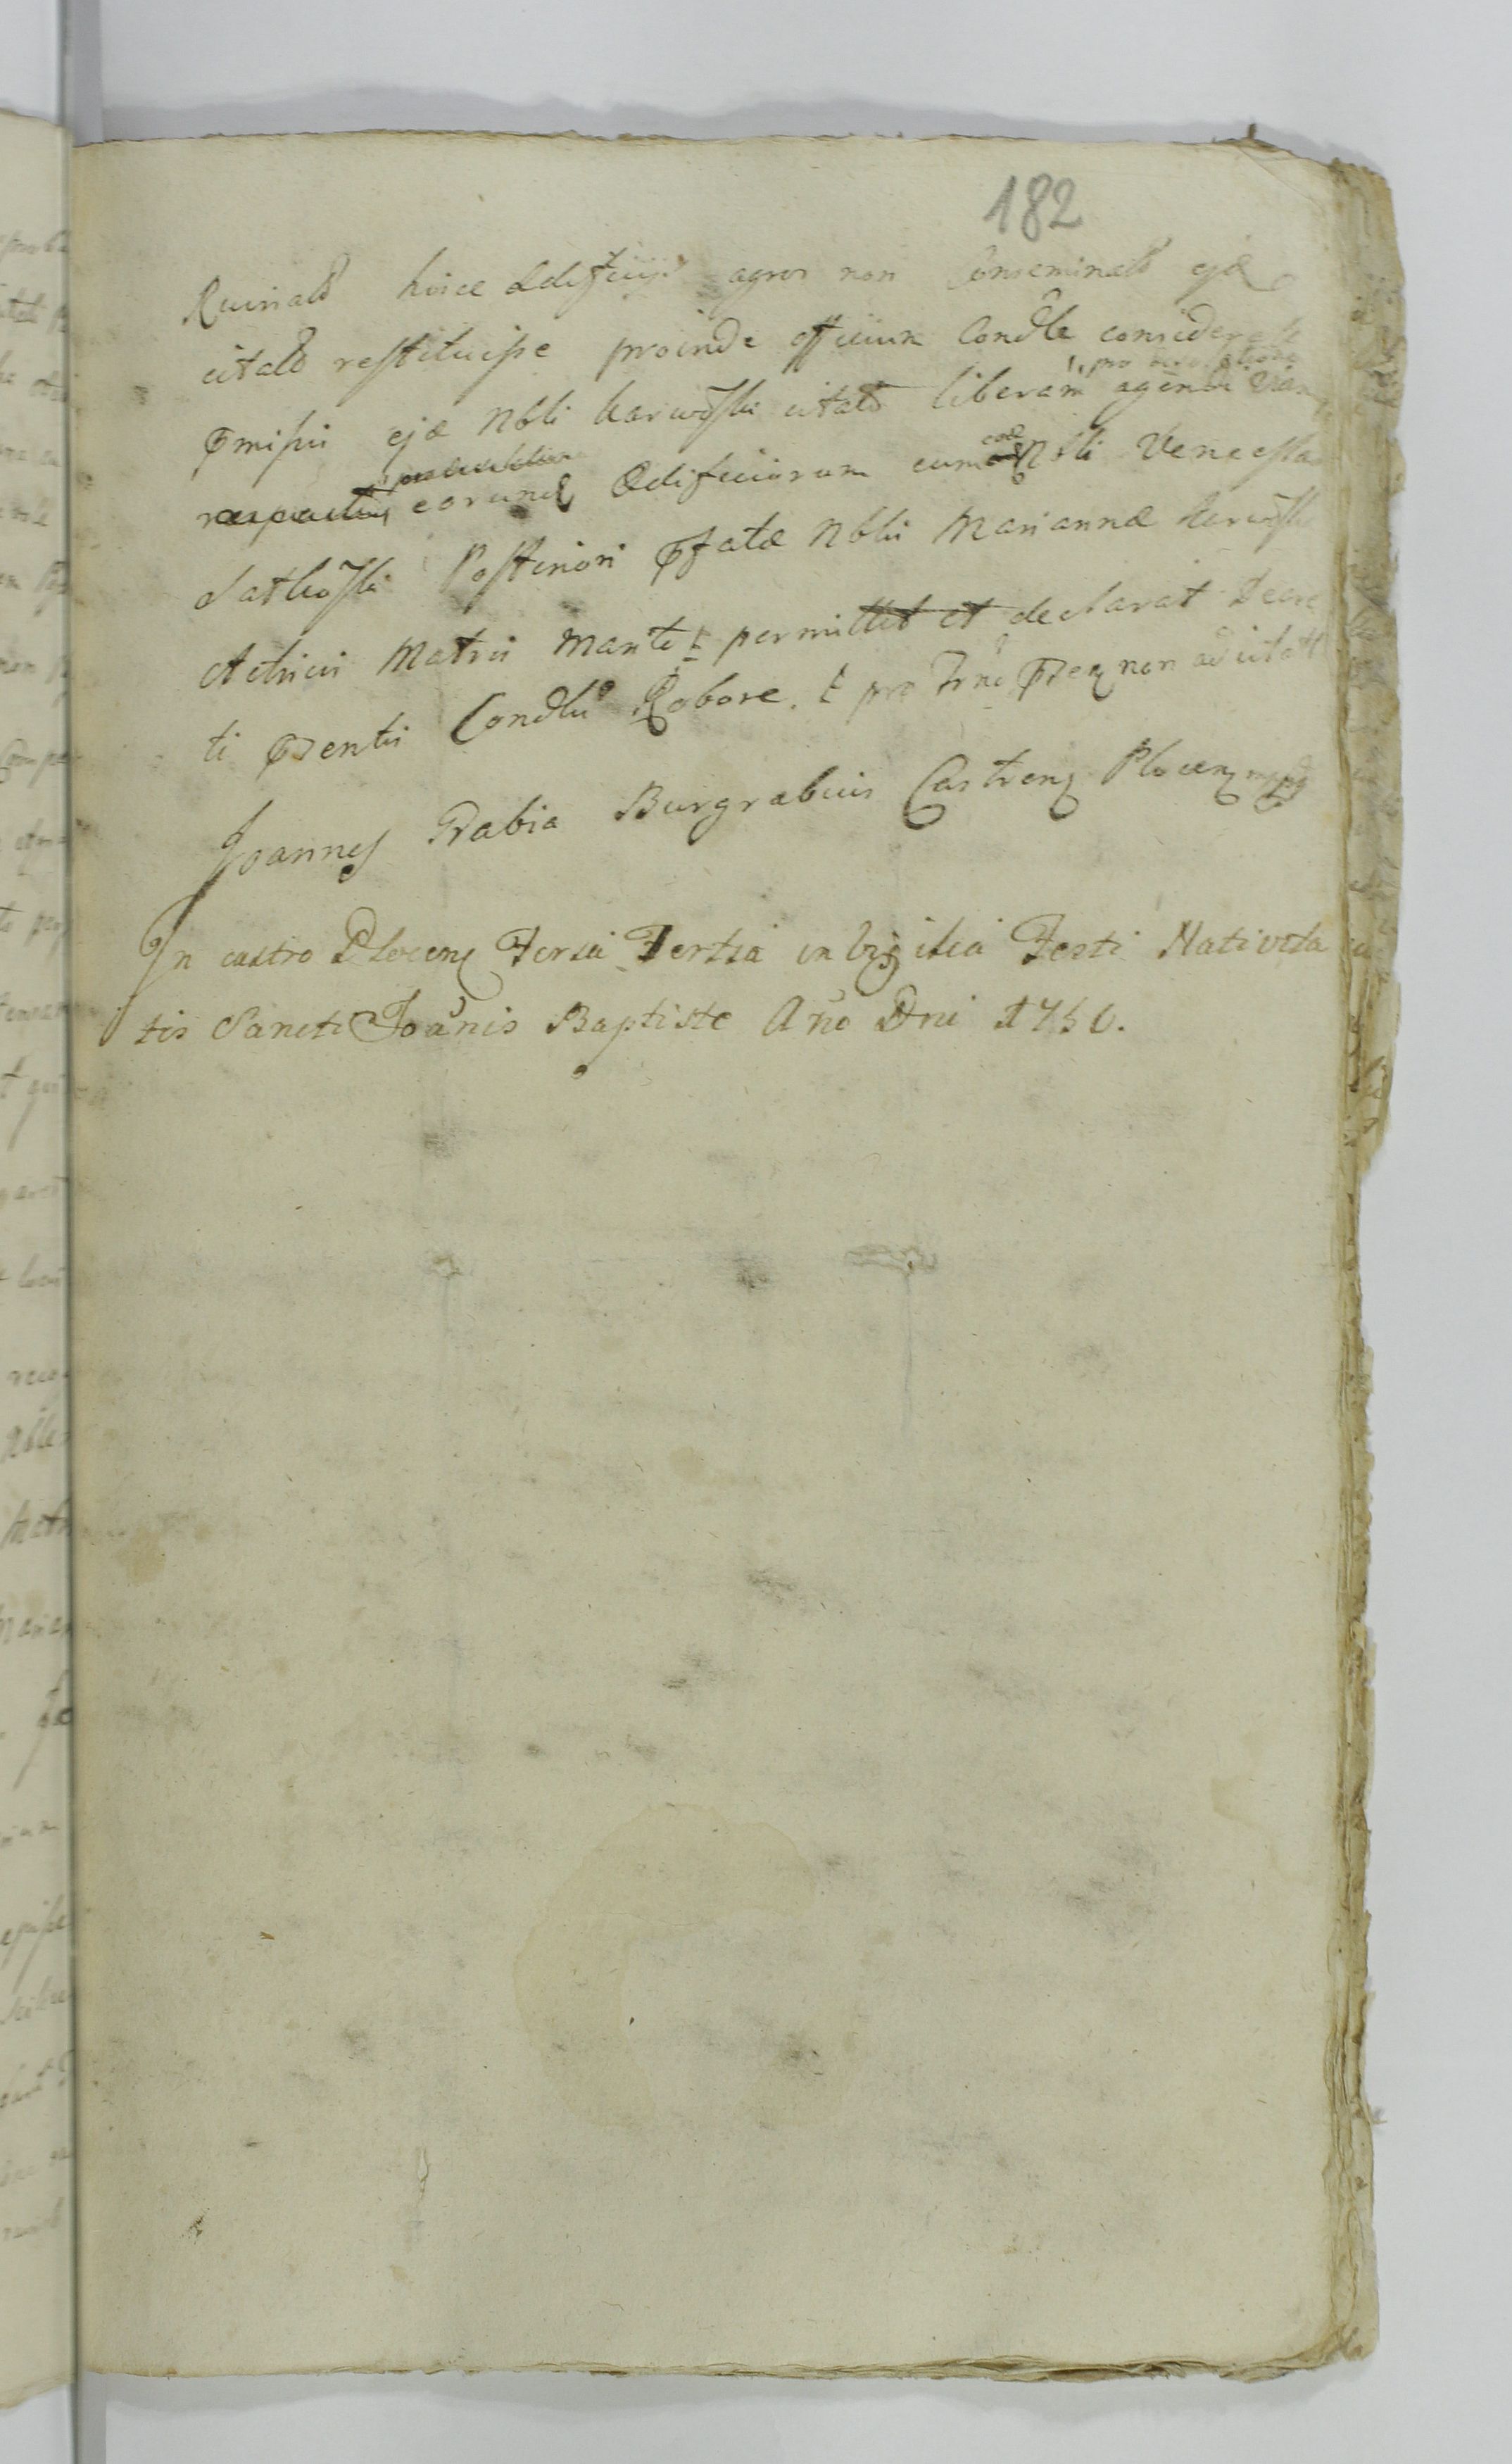 182
Ruinato hoice Ædificiis agros non Conseminato ejæ
citato restituisse proinde officium Condle considera
pmissis ejæ Nbli Karwoski citato liberam agendi viam
pro
eorunq Ædificiorum cum Nbli Venceslao
Satkoski Posteriori pfatæ Nblis Mariannæ Karwoski
Actricis Matris Marito permittit et declarat Decre
ti psentis Condlis Robore. Et pro Trno pseq non adcitatt
Joannes Grabia Burgrabius Castrenq Plocenq mpp
In castro Plocenq Feria Tertia in Vigilia Festi Nativita
tis Sancti Joanis Baptiste Ano Dni 1750.